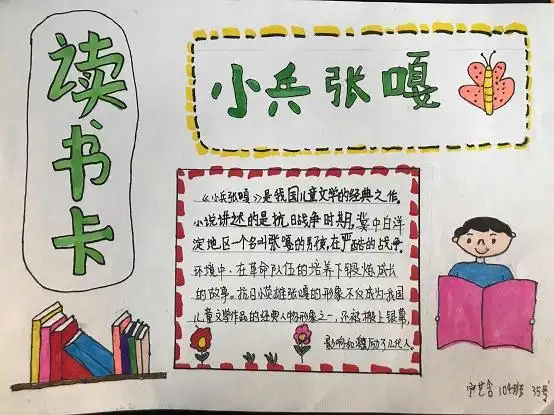 读书卡
小兵张嘎
《小兵张嘎》是我国儿童文学的经典之作。
小说讲述的是抗日战争时期,冀中白洋
淀地区一个名叫张嘎的男孩,在严酷的战争
环境中、在革命队伍的培养下锻炼成长
的故事。抗日小英雄张嘎的形象不仅成为我国
儿童文学作品的经典人物形象之一,还被搬上银幕,
影响和激励了几代人。
艺含 104班 35号